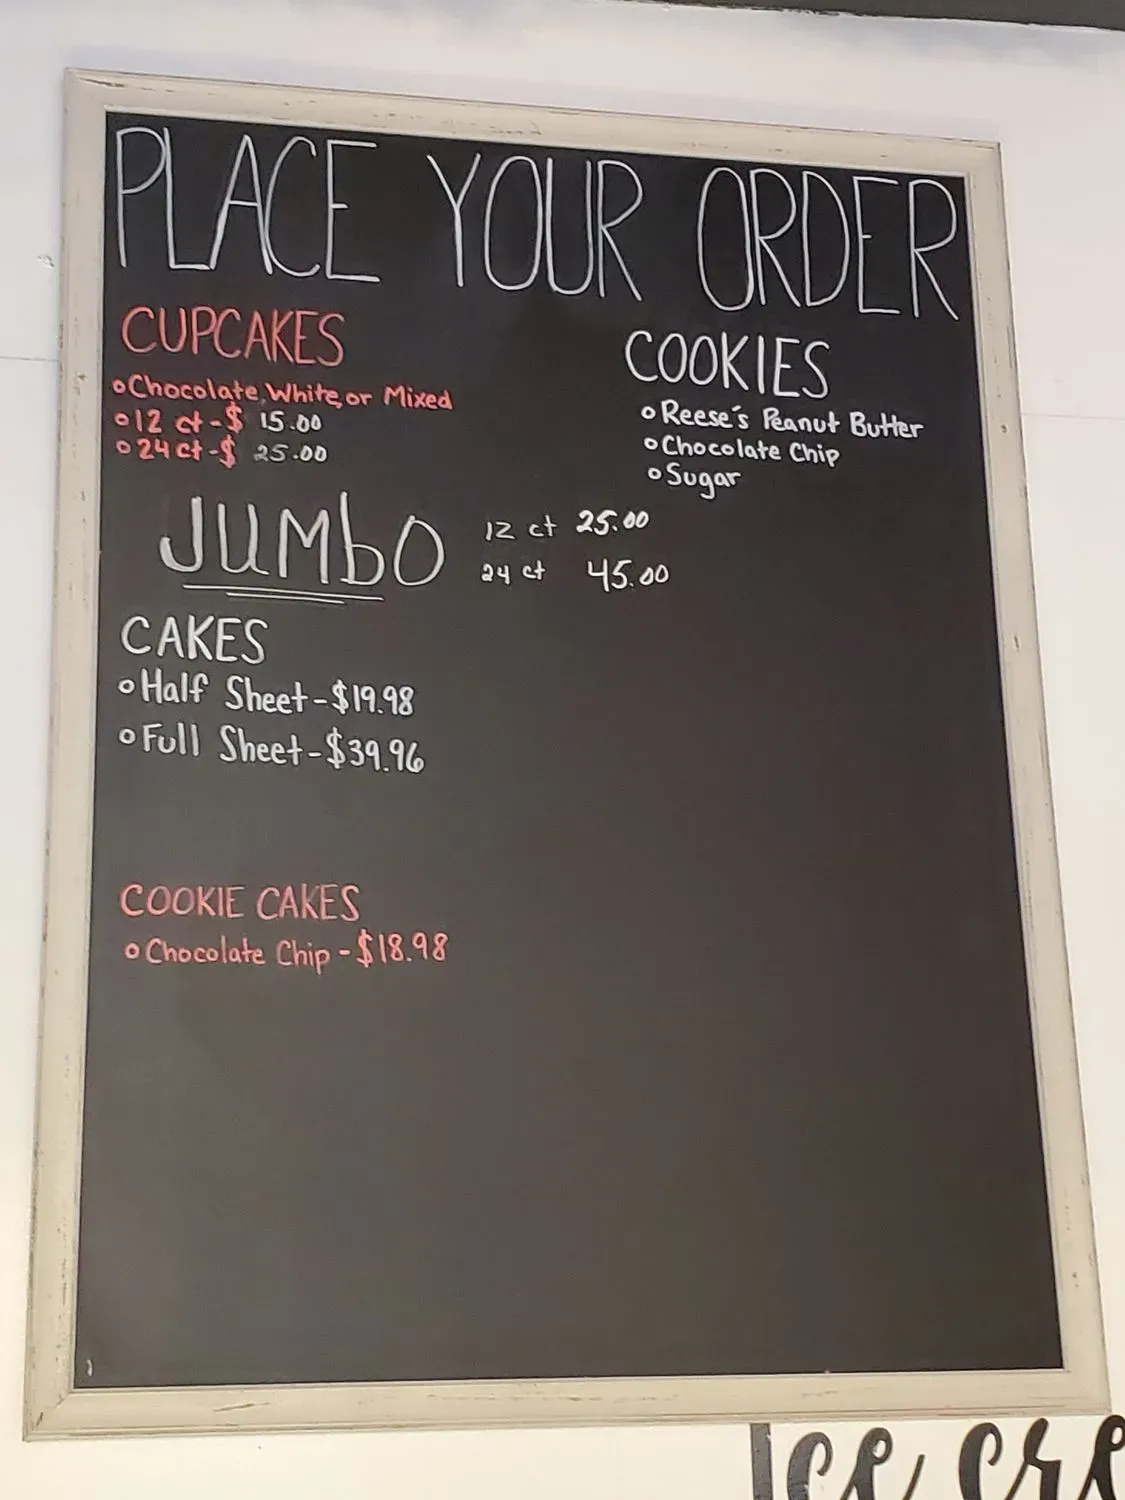 PLACE YOUR ORDER
CUPCAKES
Chocolate, White, or Mixed
12 ct - $ 15.00
24 ct - $ 25.00
COOKIES
Reese's Peanut Butter
Chocolate Chip
Sugar
JUMbO
12 ct 25.00
24 ct 45.00
CAKES
Half Sheet - $19.98
Full Sheet - $39.96
COOKIE CAKES
Chocolate Chip - $18.98
Ice cre